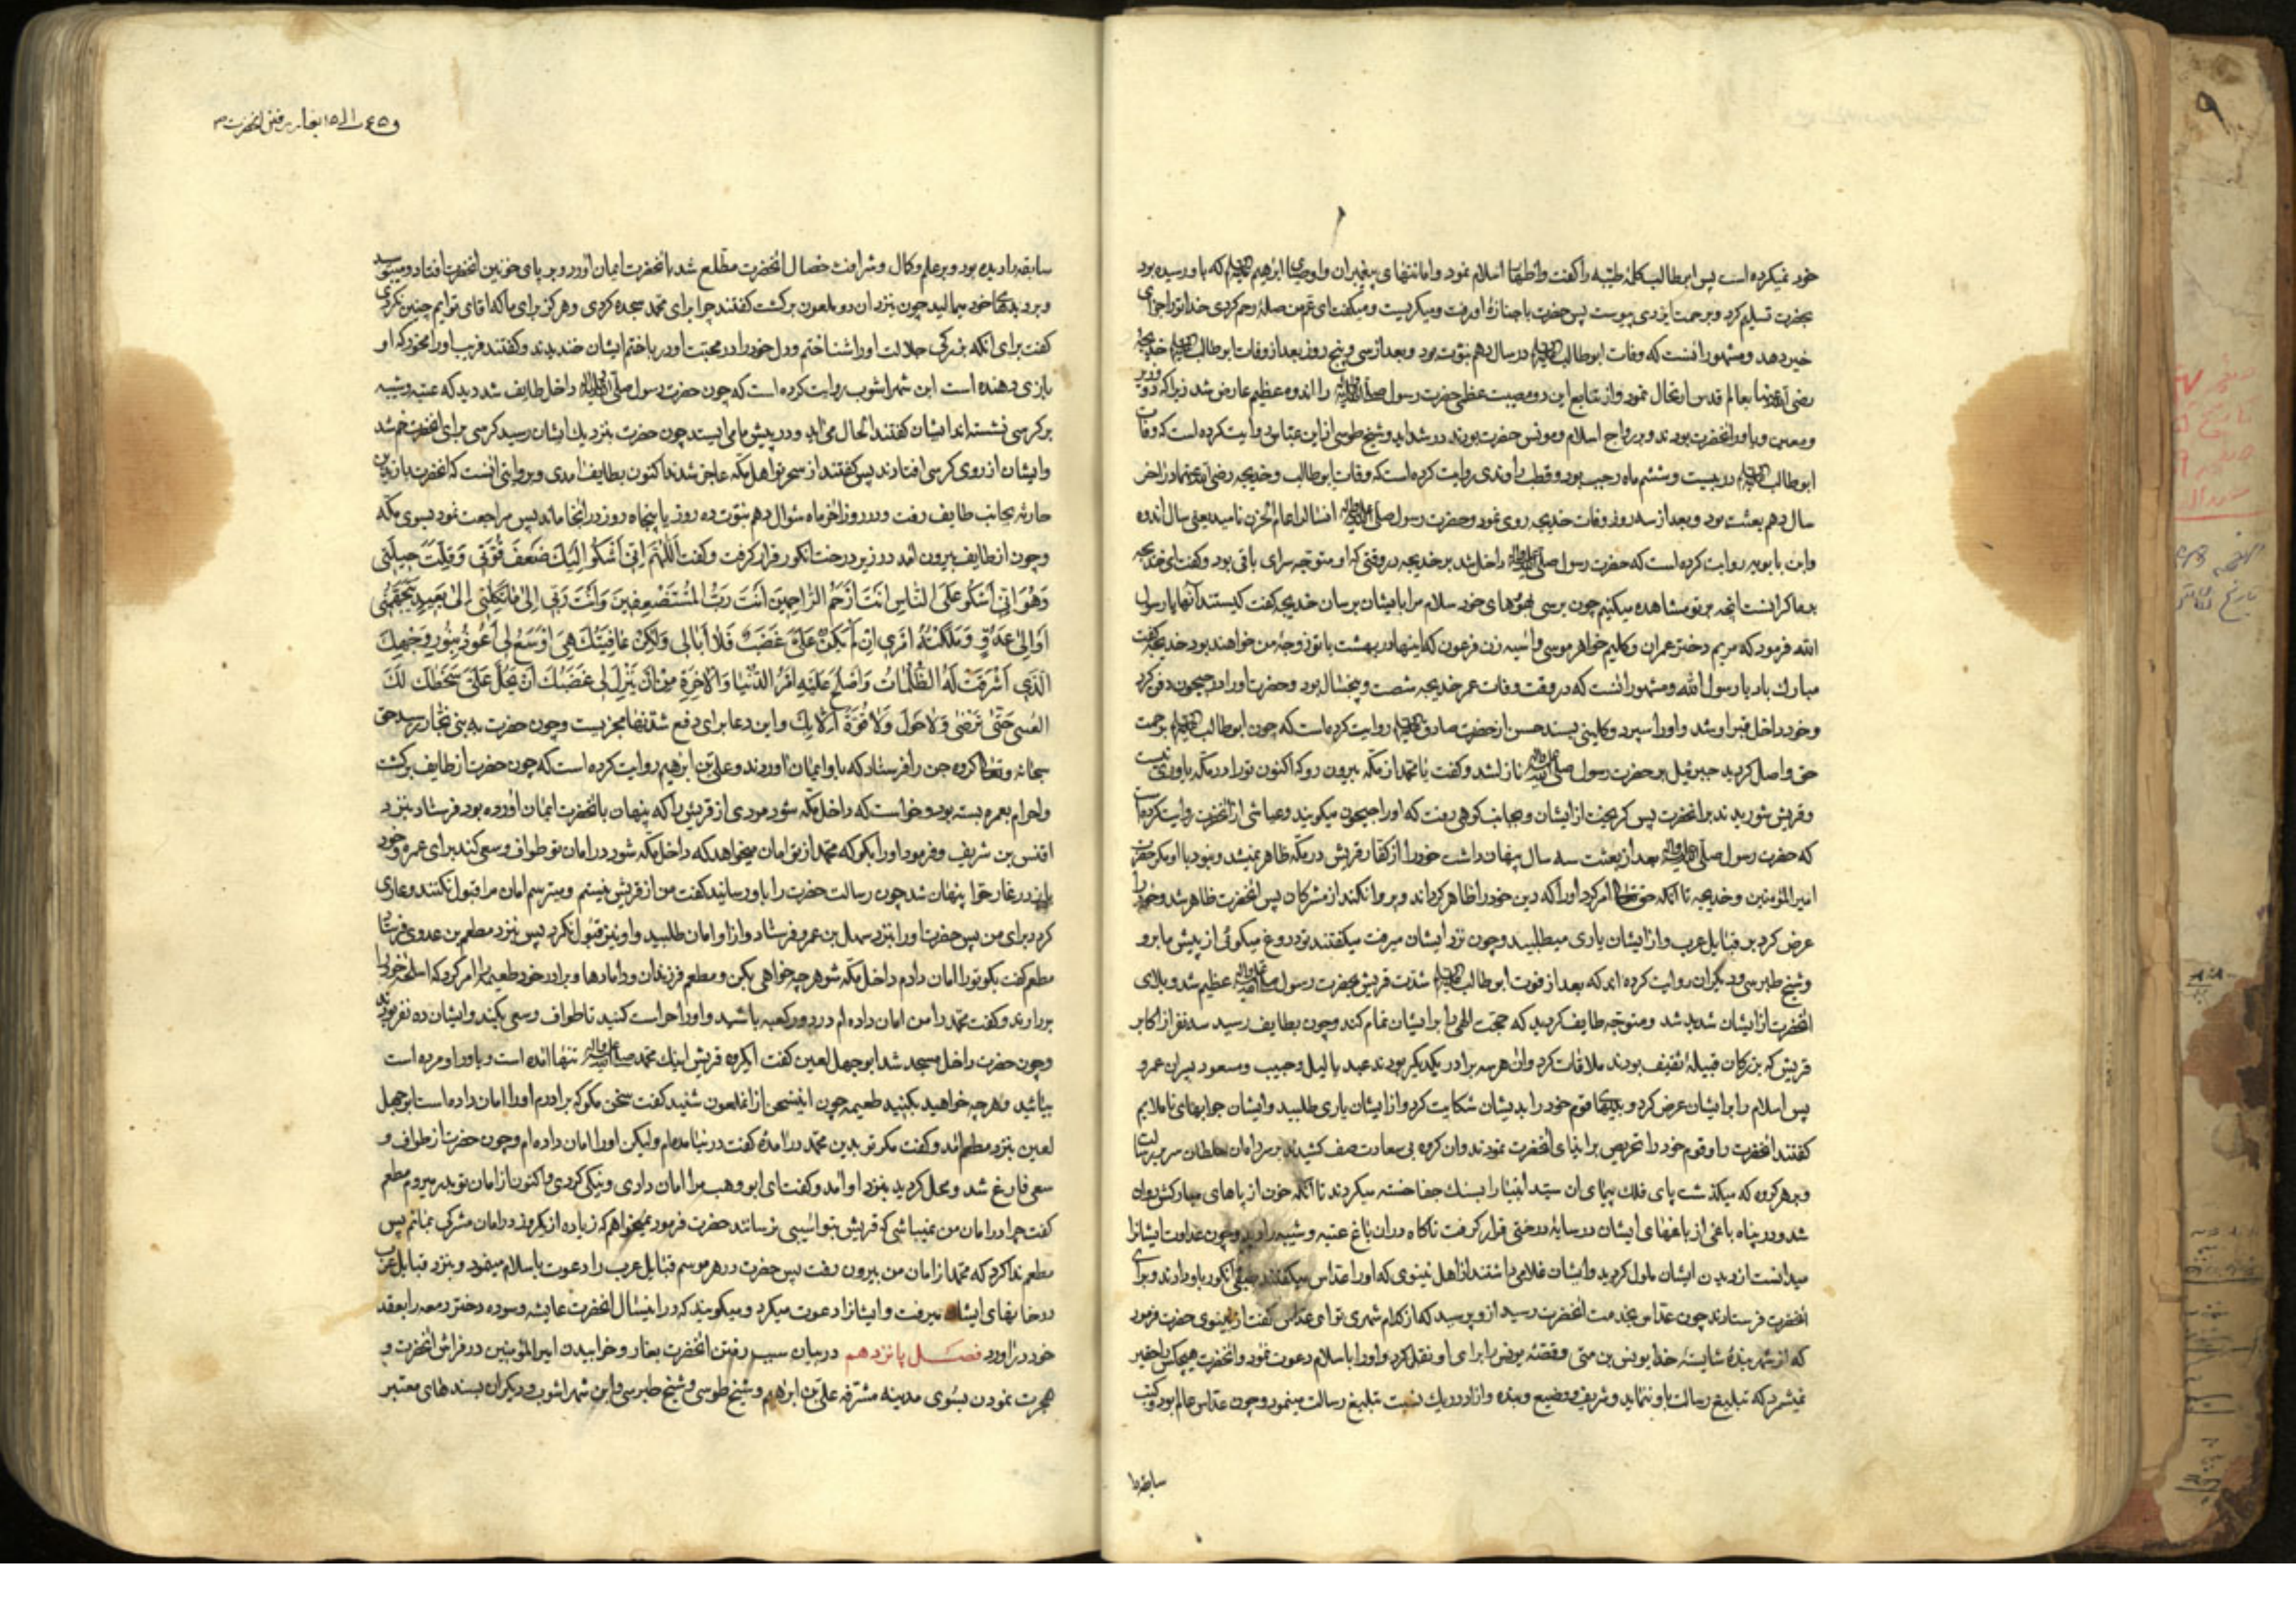 خود نمیکرده است پس ابو طالب کلمهٔ طیبه را گفت و اظهار اسلام نمود و امانتهای پیغمبران و اوصیای ابراهیم که باو رسیده بود
بحضرت تسلیم کرد و برحمت ایزدی پیوست پس حضرت با جنازهٔ او رفت و میگریست و میگفت ای عم من صلهٔ رحم کردی خدا ترا جزای
خیر دهد و مشهور آنست که وفات ابو طالب در سال دهم نبوت بود و بعد از سی و پنج روز بعد از وفات ابو طالب خدیجه
رضی الله عنها بعالم قدس ارتحال نمود و از تتابع این دو مصیبت عظمی حضرت رسول را اندوه عظیم عارض شد زیرا که دو وزیر
و معین و یاور آنحضرت بودند و در رواج اسلام و مونس حضرت بودند در شداید و شیخ طوسی از ابن عباس روایت کرده است که وفات
ابو طالب در بیست و ششم ماه رجب بود و قطب راوندی روایت کرده است که وفات ابو طالب و خدیجه رضی الله عنهما در آخر
سال دهم بعثت بود و بعد از سه روز وفات خدیجه روی نمود و حضرت رسول آنسال را عام الحزن نامید یعنی سال اندوه
وابن بابویه روایت کرده است که حضرت رسول داخل شد بر خدیجه در وقتی که او متوجه سرای باقی بود و گفت ای خدیجه
بر ما گرانست آنچه بر تو مشاهده میکنیم چون برسی بهووهای خود سلام مرا بایشان برسان خدیجه گفت کیستند آنها یا رسول
الله فرمود که مریم دختر عمران و کلیم خواهر موسی و آسیه زن فرعون که اینها در بهشت با تو زوجهٔ من خواهند بود خدیجه گفت
مبارک باد یا رسول الله و مشهور آنست که در وقت وفات عمر خدیجه شصت و پنجسال بود و حضرت او را در حجون دفن کرد
و خود داخل قبر او شد و او را سپرد و کلینی بسند حسن از حضرت صادق روایت کرده است که چون ابو طالب برحمت
حق واصل گردید جبرئیل بر حضرت رسول نازل شد و گفت یا محمد از مکه بیرون رو که اکنون تو را در مکه یاوری نیست
و قریش شوریدند بر آنحضرت پس گریخت از ایشان و بجانب کوهی رفت که او را حجون میگویند و عیاشی از آنحضرت روایت کرده
که حضرت رسول بعد از بعثت سه سال پنهان داشت خود را از کفار قریش در مکه ظاهر نمیشد و نبود با او مگر حضرت
امیر المؤمنین و خدیجه تا آنکه حق تعالی امر کرد او را که دین خود را ظاهر گرداند و پروا نکند از مشرکان پس آنحضرت ظاهر شد و خود را
عرض کرد بر قبایل عرب و از ایشان یاری میطلبید و چون نزد ایشان میرفت میگفتند تو دروغ میگوئی از پیش ما برو
و شیخ طبرسی و دیگران روایت کرده اند که بعد از فوت ابو طالب شدت قریش بحضرت رسول عظیم شد و بلای
آنحضرت از ایشان شدید شد و متوجه طایف گردید که حجت الهی را بر ایشان تمام کند و چون بطایف رسید سه نفر از اکابر
قریش که بزرگان قبیلهٔ ثقیف بودند ملاقات کرد و آن هر سه برادر یکدیگر بودند عبد یالیل و حبیب و مسعود پسران عمرو
پس اسلام را بر ایشان عرض کرد و قوم خود را بدیشان شکایت کرد و از ایشان یاری طلبید و ایشان جوابهای ناملایم
گفتند آنحضرت را و قوم خود را تحریص بر ایذای آنحضرت نمودند و آن گروه بی سعادت صف کشیدند بر سر راه آن سلطان سریر رسالت
و بر هر گروه که میگذشت پای فلک پیمای آن سید انبیا را بسنگ جفا خسته میکردند تا آنکه خون از پاهای مبارکش روان
شد و در پناه باغی از باغهای ایشان در سایهٔ درختی قرار گرفت ناگاه در آن باغ عتبه و شیبه را دید و چون عداوت ایشانرا
میدانست از دیدن ایشان ملول گردید و ایشان غلامی داشتند از اهل نینوی که او را عداس میگفتند طبقی انگور باو دادند و برای
آنحضرت فرستادند چون عداس بخدمت آنحضرت رسید از و پرسید که از کدام شهری تو ای عداس گفت از نینوی حضرت فرمود
که از شهر بندهٔ شایستهٔ خدا یونس بن متی و قصهٔ یونس را برای او نقل کرد و او را باسلام دعوت نمود و آنحضرت هیچکس را حقیر
نمیشمرد که تبلیغ رسالت باو ننماید و شریف و وضیع و بنده و آزاد در یک نسبت تبلیغ رسالت مینمود و چون عداس عالم بود و کتب
سابقه را
سابقه را دیده بود و بر علم و کمال و شرافت خصال آنحضرت مطلع شد بآنحضرت ایمان آورد و بر پای خونین آنحضرت افتاد و میبوسید
و بر دیدهای خود میمالید چون بنزد آن دو ملعون برگشت گفتند چرا برای محمد سجده کردی و هرگز برای ما که آقای توایم چنین نکردی
گفت برای آنکه بزرگی جلالت او را شناختم و دل خود را در محبت او در باختم ایشان خندیدند و گفتند فریب او را مخور که او
بازی دهنده است ابن شهر اشوب روایت کرده است که چون حضرت رسول داخل طایف شد دید که عتبه و شیبه
بر کرسی نشسته اند ایشان گفتند الحال می آید و در پیش ما می ایستد چون حضرت بنزدیک ایشان رسید کرسی برای آنحضرت خم شد
و ایشان از روی کرسی افتادند پس گفتند از سحر تو اهل مکه عاجز شدند اکنون بطایف آمدی و بروایتی آنست که آنحضرت با زید بن
حارثه بجانب طایف رفت و در روز آخر ماه شوال دهم نبوت ده روز یا پنجاه روز در آنجا ماند پس مراجعت نمود بسوی مکه
و چون از طایف بیرون آمد در زیر درخت انگور قرار گرفت و گفت اَللّٰهُمَّ اِنّی اَشْکُو اِلَیْکَ ضَعْفَ قُوَّتی وَ قِلَّتَ حیلَتی
وَ هَوانی عَلَی النّاسِ اَنْتَ اَرْحَمُ الرّاحِمینَ اَنْتَ رَبُّ الْمُسْتَضْعَفینَ وَ اَنْتَ رَبّی اِلیٰ مَنْ تَکِلُنی اِلیٰ بَعیدٍ یَتَجَهَّمُنی
اَوْ اِلیٰ عَدُوٍّ مَلَّکْتَهُ اَمْری اِنْ لَمْ یَکُنْ عَلَیَّ غَضَبٌ فَلا اُبالی وَلکِنْ عافِیَتُکَ هِیَ اَوْسَعُ لی اَعُوذُ بِنُورِ وَجْهِکَ
الَّذی اَشْرَقَتْ لَهُ الظُّلُماتُ وَ اَصْلَحَ عَلَیْهِ اَمْرُ الدُّنْیا وَ الْاٰخِرَةِ مِنْ اَنْ یَنْزِلَ لی غَضَبُکَ اَنْ یَحُلَّ عَلَیَّ سَخَطُکَ لَکَ
الْعُتْبی حَتّیٰ تَرْضیٰ وَ لا حَوْلَ وَ لا قُوَّةَ اِلّا بِکَ و این دعا برای دفع شدتها مجربست و چون حضرت رسید حق
سبحانه و تعالی گروه جن را فرستاد که باو ایمان آوردند و علی بن ابراهیم روایت کرده است که چون حضرت از طایف برگشت
و احرام بعمره بسته بود و خواست که داخل مکه شود مردی از قریش را که پنهان بآنحضرت ایمان آورده بود فرستاد بنزد
اخنس بن شریف و فرمود او را بگو که محمد از تو امان میخواهد که داخل مکه شود در امان تو طواف و سعی کند برای عمره و خود
در غار حرا پنهان شد چون رسالت حضرت را باو رسانید گفت من از قریش نیستم و میترسم امان مرا قبول نکنند و عاری
گردد برای من پس حضرت او را بنزد سهل بن عمرو فرستاد و از او امان طلبید و او نیز قبول نکرد پس بنزد مطعم بن عدی فرستاد
مطعم گفت بگو تو را امان دادم داخل مکه شو هر چه خواهی بکن و مطعم فرزندان و دامادها و برادر خود طعیمه را امر کرد که اسلحهٔ خود را
بردارند و گفت محمد را من امان داده ام در دور کعبه باشید و او را حراست کنید تا طواف و سعی بکند و ایشان ده نفر بودند
و چون حضرت داخل مسجد شد ابو جهل لعین گفت ایگروه قریش اینک محمد تنها آمده است و یاور او مرده است
بیائید و هر چه خواهید بکنید طعیمه چون این سخن از آن ملعون شنید گفت سخن مگو که برادرم او را امان داده است ابو جهل
لعین بنزد مطعم آمد و گفت مگر تو بدین محمد درآمدهٔ گفت در نیامده ام ولیکن او را امان داده ام و چون حضرت از طواف و
سعی فارغ شد و محل گردید بنزد او آمد و گفت ای ابو وهب مرا امان دادی و نیکی کردی اکنون از امان تو بدر میروم مطعم
گفت چرا در امان من نمیباشی که قریش بتو آسیبی نرسانند حضرت فرمود نمیخواهم که زیاده از یکروز در امان مشرکی بمانم پس
مطعم ندا کرد که محمد از امان من بیرون رفت پس حضرت در هر موسم قبایل عرب را دعوت باسلام مینمود و بنزد قبایل عرب
در خانهای ایشان میرفت و ایشانرا دعوت میکرد و میگویند که در اینسال آنحضرت عایشه و سوده دختر زمعه را بعقد
خود درآورد فصـل پانزدهم در بیان سبب رفتن آنحضرت بغار و خوابیدن امیر المؤمنین در فراش آنحضرت و
هجرت نمودن بسوی مدینه مشرفه علی بن ابراهیم و شیخ طوسی و شیخ طبرسی و ابن شهر اشوب و دیگران بسندهای معتبر